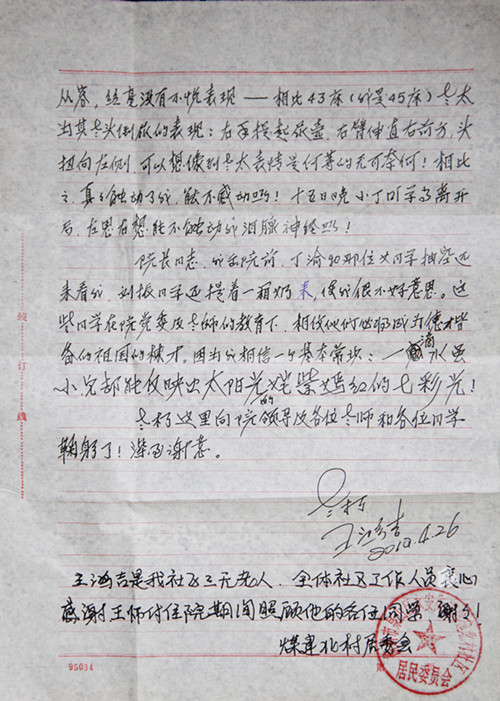 从容，丝毫没有不悦表现——相比43床（我是45床）老太
出其老头倒尿的表现：右手提起尿壶，右臂伸直右前方，头
扭向左侧，可以想像到老太表情是何等的无可奈何！相比
之，真是触动了我，能不感动吗！十五日晚小丁同学离开
后，在思在想能不触动我泪腺神经吗！
院长同志，我出院前，丁渝 那位女同学抽空还
来看我，刘振同学还提着一箱奶来，使我很不好意思。这
些同学在院党委及老师的教育下，相信他们必将成为德才皆
备的祖国的栋才。因为我相信一个基本常识：一滴水虽
小它都能反映出太阳光的姹紫嫣红的七彩光！
老朽这里向院领导及各位老师和各位同学
鞠躬了！深至谢意。
老朽
王鸿吉
2010.4.26
王鸿吉是我社区三无老人，全体社区工作人员衷心
感谢 住院期间照顾他的各位同学 谢谢！
煤建北村居委会
居民委员会
装订线
95034
第